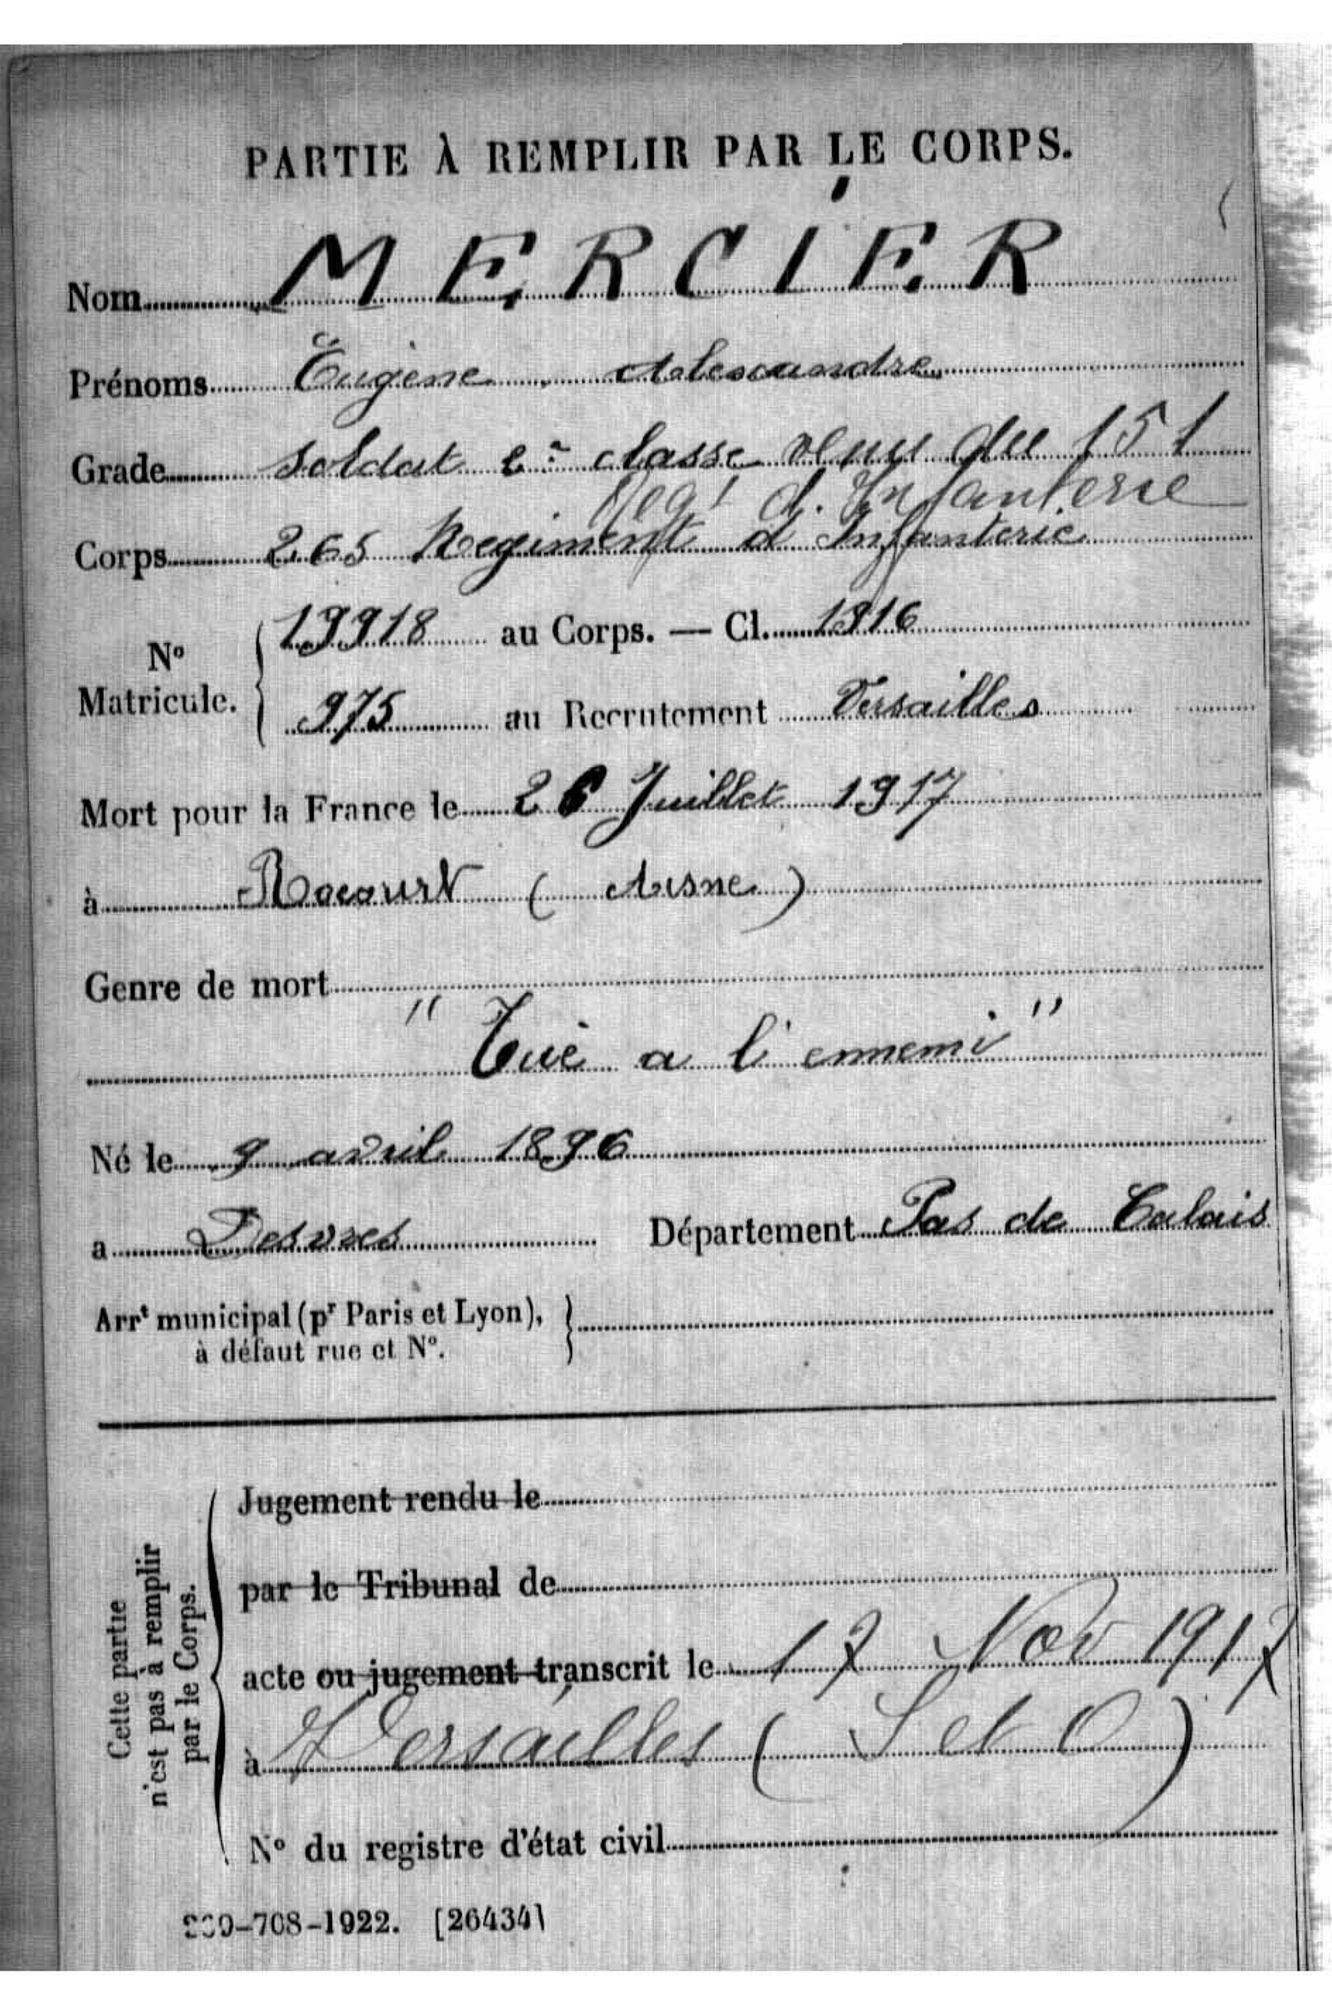 PARTIE À REMPLIR PAR LE CORPS.
Nom MERCIER
Prénoms Eugène Alexandre
Grade Soldat 2e classe venu du 151
Regt d. Infanterie
Corps 265 Regiment d Infanterie
No Matricule. 19918 au Corps. — Cl. 1916
975 au Recrutement Versailles
Mort pour la France le 26 Juillet 1917
à Rocourt (Aisne)
Genre de mort
"Tué a l'ennemi"
Né le 9 avril 1896
a Desvres Département Pas de Calais
Arrt municipal (pr Paris et Lyon),
à défaut rue et No.
Cette partie
n'est pas à remplir
par le Corps.
Jugement rendu le
par le Tribunal de
acte ou jugement transcrit le 17 Nov 1917
à Versailles (S et O)
No du registre d'état civil
-708-1922. [26434]